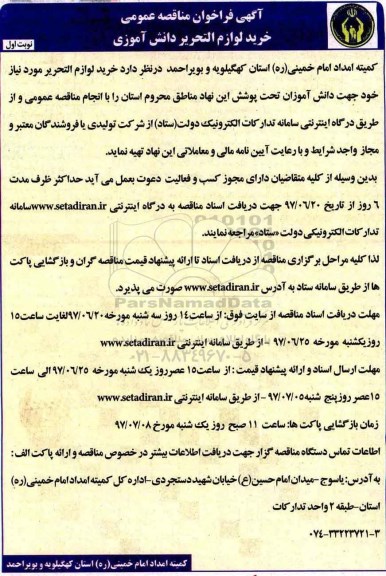 آگهی فراخوان مناقصه عمومی
خرید لوازم التحریر دانش آموزی
نوبت اول
کمیته امداد امام خمینی(ره) استان کهگیلویه و بویراحمد درنظر دارد خرید لوازم التحریر مورد نیاز
خود جهت دانش آموزان تحت پوشش این نهاد مناطق محروم استان را با انجام مناقصه عمومی و از
طریق درگاه اینترنتی سامانه تدارکات الکترونیک دولت(ستاد) از شرکت تولیدی یا فروشندگان معتبر و
مجاز واجد شرایط و با رعایت آیین نامه مالی و معاملاتی این نهاد تهیه نماید.
بدین وسیله از کلیه متقاضیان دارای مجوز کسب و فعالیت دعوت بعمل می آید حداکثر ظرف مدت
۶ روز از تاریخ ۹۷/۰۶/۲۰ جهت دریافت اسناد مناقصه به درگاه اینترنتی www.setadiran.ir سامانه
تدارکات الکترونیکی دولت «ستاد» مراجعه نمایند.
لذا کلیه مراحل برگزاری مناقصه از دریافت اسناد تا ارائه پیشنهاد قیمت مناقصه گران و بازگشایی پاکت
ها از طریق سامانه ستاد به آدرس www.setadiran.ir صورت می پذیرد.
مهلت دریافت اسناد مناقصه از سایت فوق: از ساعت ۱۴ روز سه شنبه مورخه ۹۷/۰۶/۲۰ لغایت ساعت ۱۵
روز یکشنبه مورخه ۹۷/۰۶/۲۵ - از طریق سامانه اینترنتی www.setadiran.ir
مهلت ارسال اسناد و ارائه پیشنهاد قیمت : از ساعت ۱۵ عصر روز یک شنبه مورخه ۹۷/۰۶/۲۵ الی ساعت
۱۵ عصر روز پنج شنبه ۹۷/۰۷/۰۵ - از طریق سامانه اینترنتی www.setadiran.ir
زمان بازگشایی پاکت ها: ساعت ۱۱ صبح روز یک شنبه مورخ ۹۷/۰۷/۰۸
اطلاعات تماس دستگاه مناقصه گزار جهت دریافت اطلاعات بیشتر در خصوص مناقصه و ارائه پاکت الف:
به آدرس: یاسوج - میدان امام حسین(ع) خیابان شهید دستجردی - اداره کل کمیته امداد امام خمینی(ره)
استان - طبقه ۲ واحد تدارکات
۰۷۴-۳۳۲۲۳۷۲۱-۳
کمیته امداد امام خمینی(ره) استان کهگیلویه و بویراحمد
ParsNamadData
۰۲۱-۸۸۳۴۹۶۷۰-۵